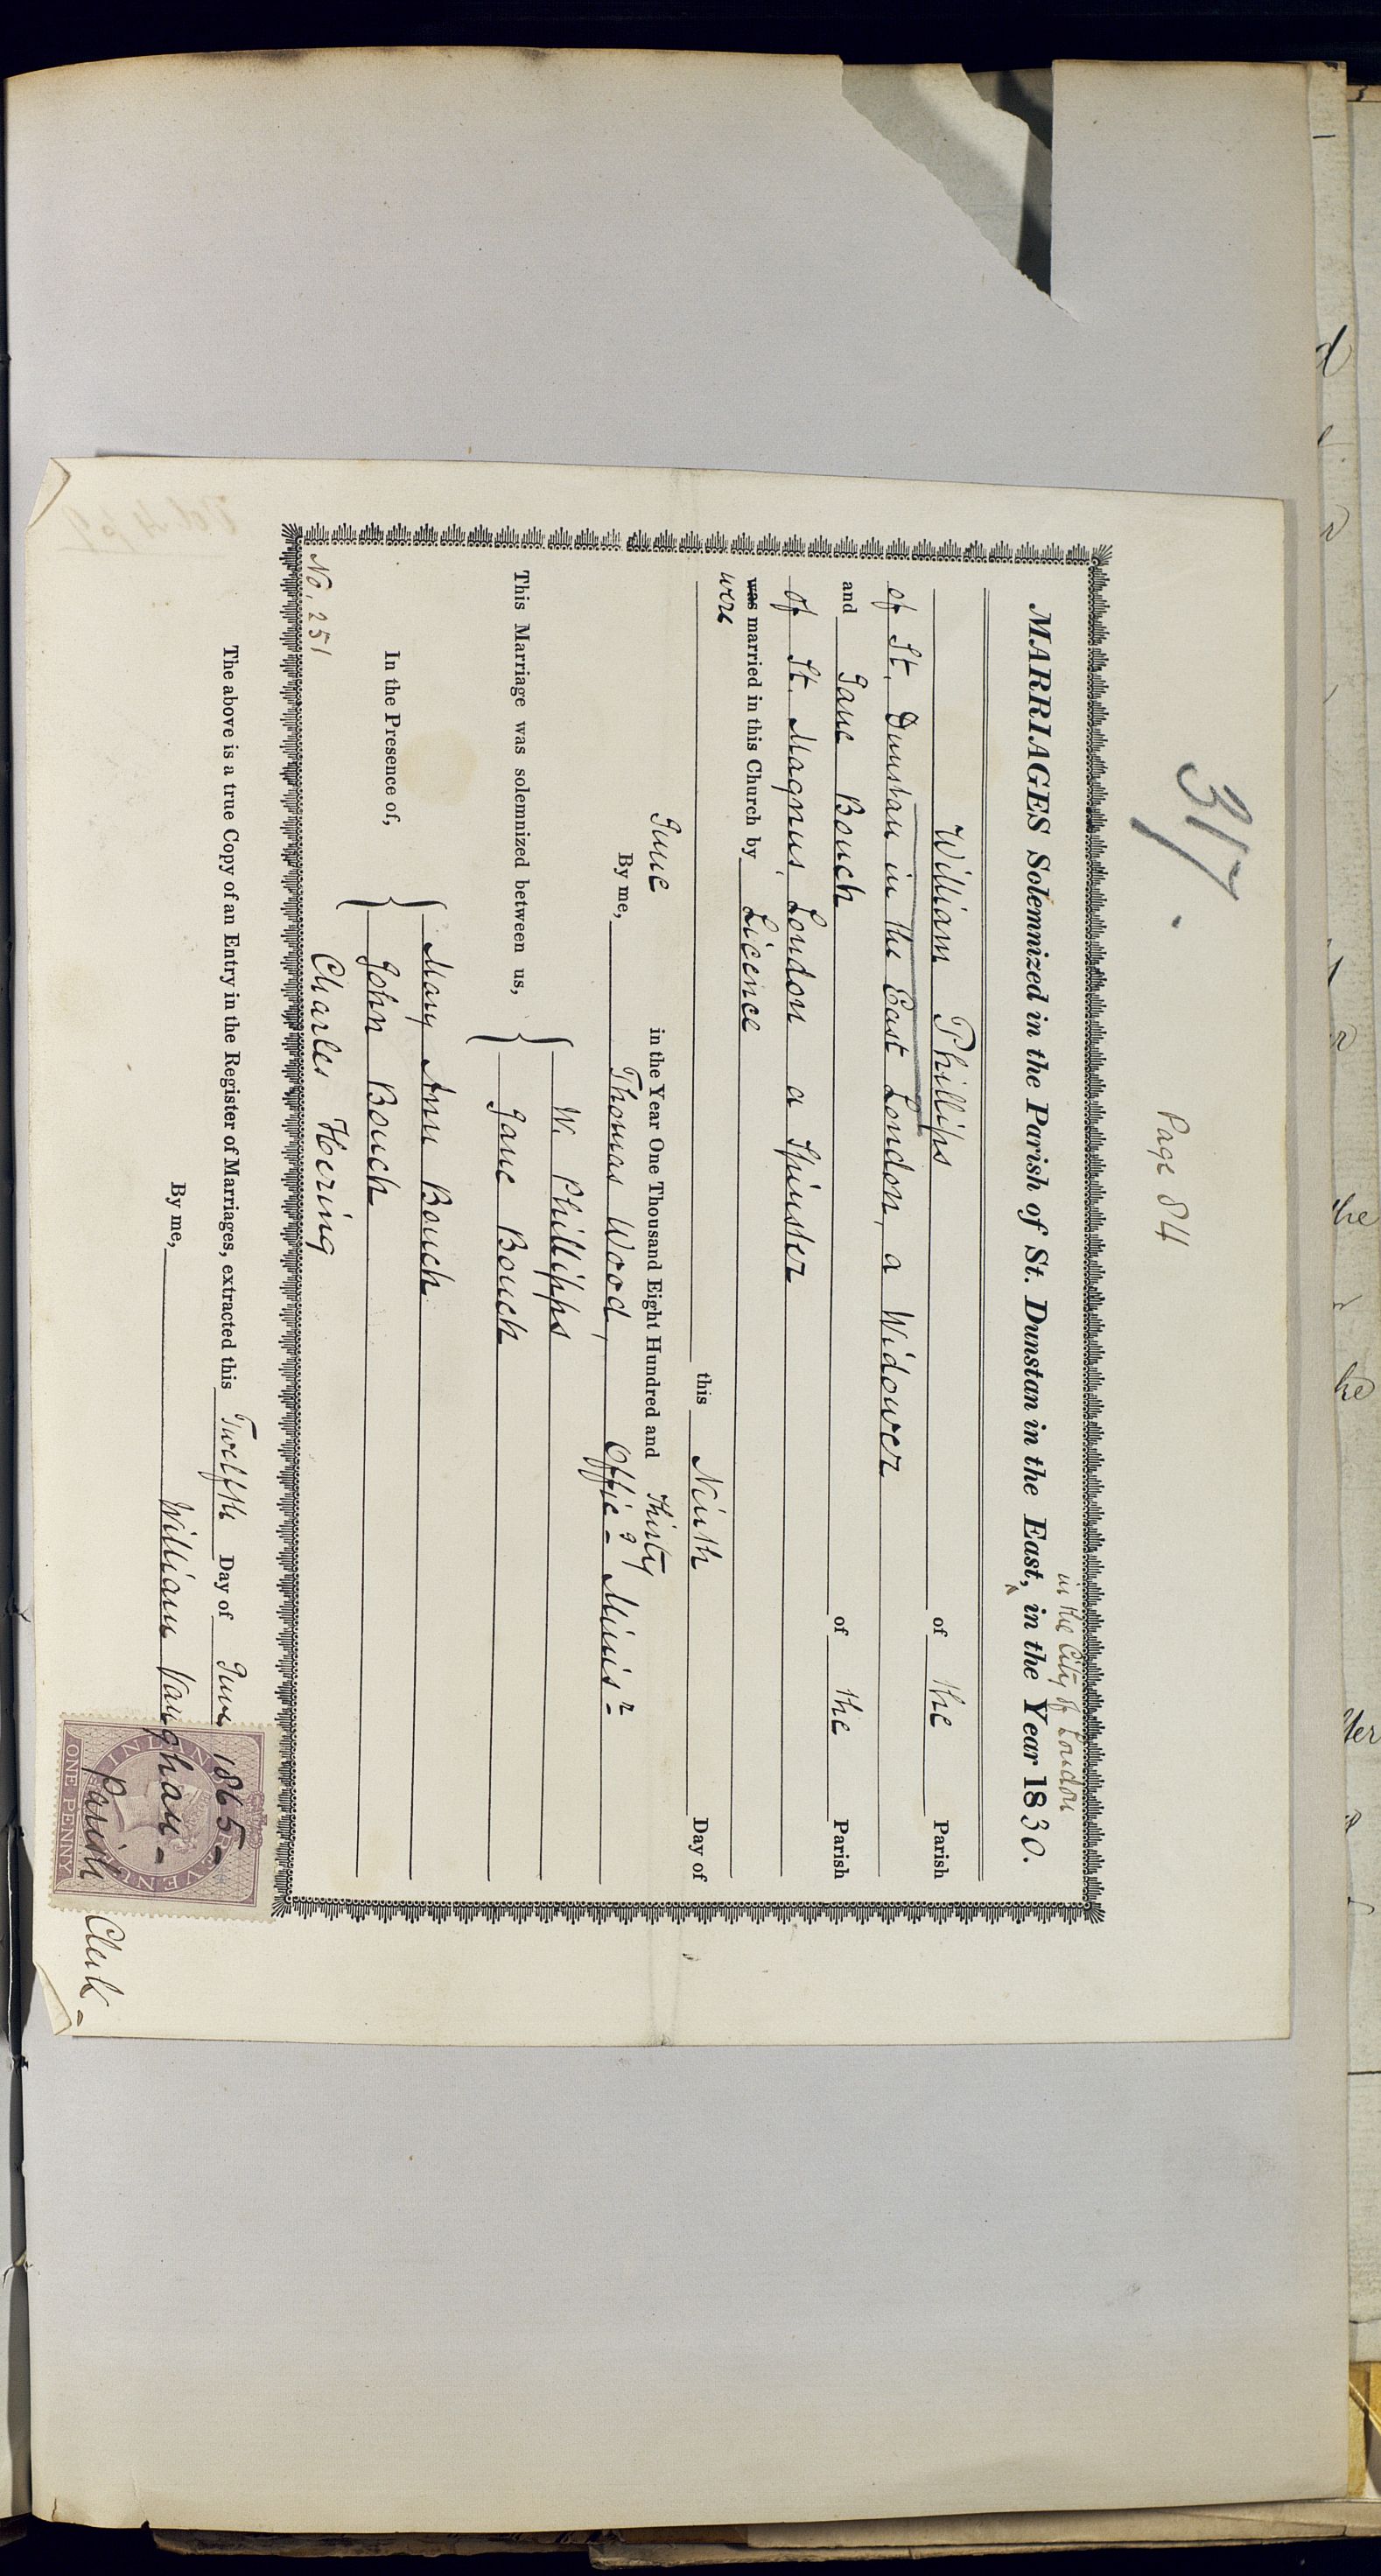 317.
Page 84
in the City of London
MARRIAGES Solemnized in the Parish of St. Dunstan in the East, in the Year 1830.
William Phillips of the Parish
of St. Dunstan in the East London, a Widower
and Jane Bouch of the Parish
of St. Magnus London a Spinster
was married in this Church by Licence
were
this Ninth Day of
June in the Year One Thousand Eight Hundred and Thirty
By me, Thomas Wood, Offic-g Minisr
This Marriage was solemnized between us, { W. Phillipps
Jane Bouch
In the Presence of, { Mary Ann Bouch
John Bouch
Charles Hering
No. 251
The above is a true Copy of an Entry in the Register of Marriages, extracted this Twelfth Day of June 1865-
By me, William Vaughan-
Parish Clerk-
INLAND REVENUE
ONE PENNY